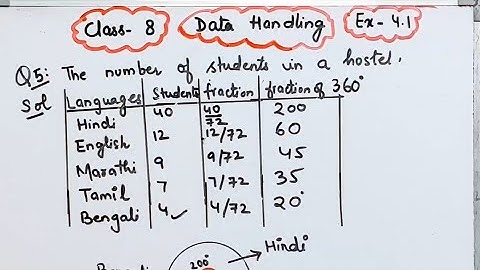 Class- 8 Data Handling Ex- 4.1
Q5: The number of students in a hostel.
Sol Languages Students fraction fraction of 360°
Hindi 40 40/72 200
English 12 12/72 60
Marathi 9 9/72 45
Tamil 7 7/72 35
Bengali 4 ✓ 4/72 20°
200° Hindi